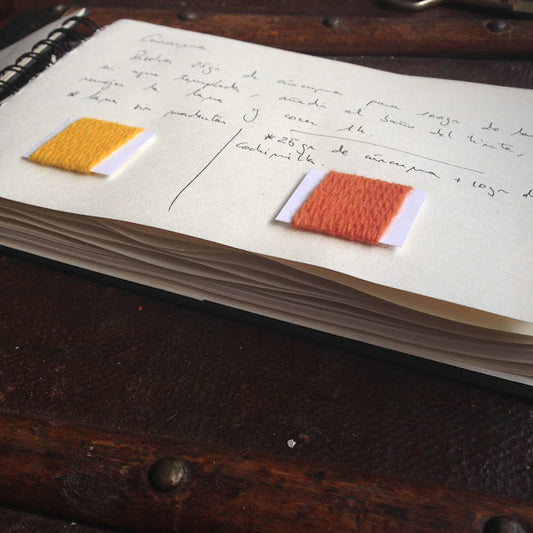 Cúrcuma
Disolver 25gr. de cúrcuma para 100gr de
en agua templada, añadir al baño del tinte,
remojar la lana y cocer 1h.
* lana sin mordentar
* 25gr de cúrcuma + 10gr de
cochinilla.